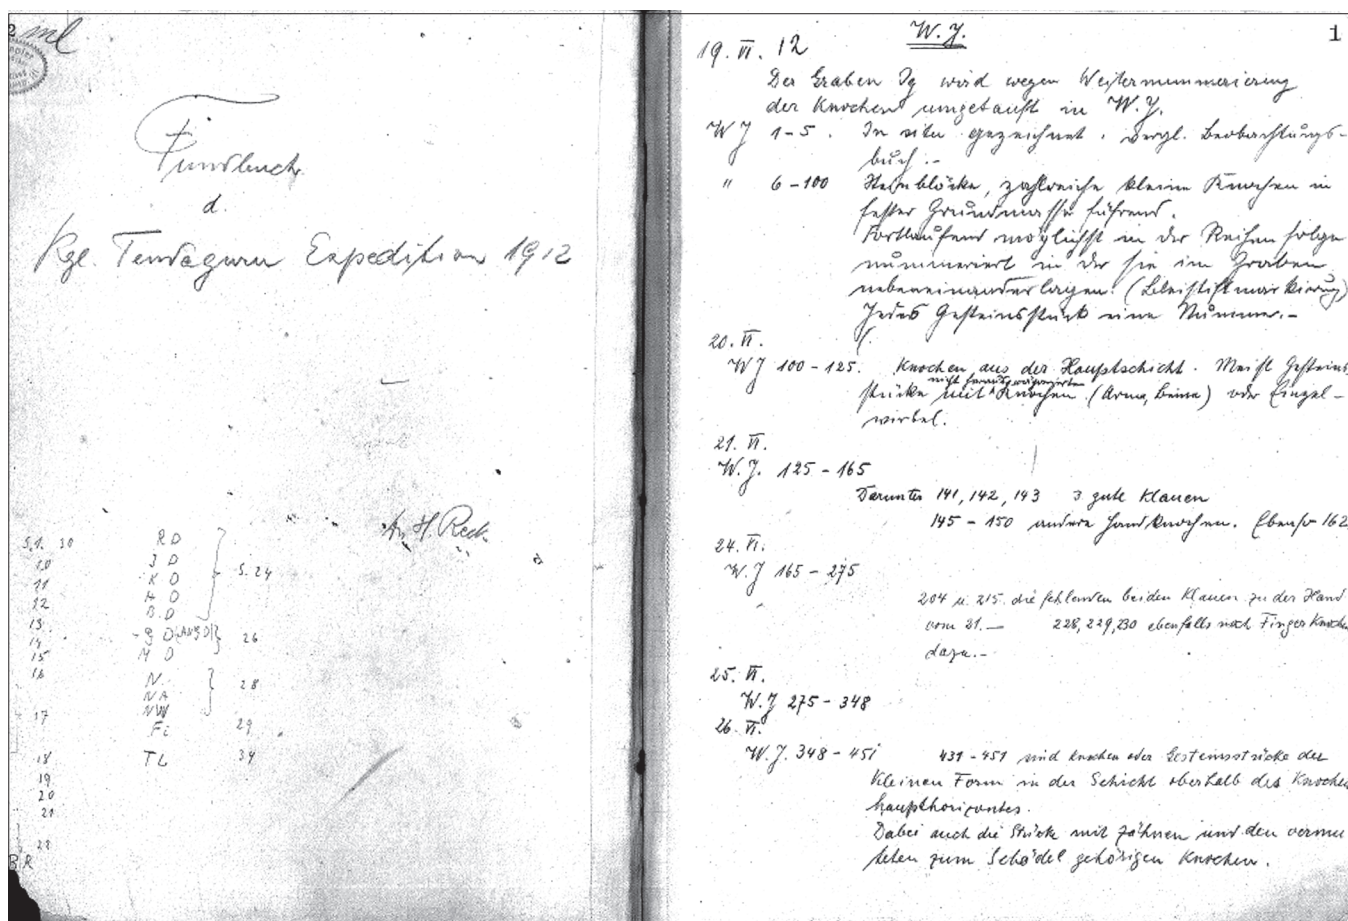 2
ml
Fundbuch
d.
Kgl. Tendaguru Expedition 1912
Dr. H. Reck
S. 1. 30
10
11
12
13.
14.
15
16
17
18
19
20
21
22
BR
RD
JD
KD
HD
B.D
S. 24
g D
M D
26
N.
NA
NW
28
Fi 29
TL 34
W. J.
1
19. VI. 12
Der Graben Ig wird wegen Weiternummerierung
der Knochen umgetauft in W. J.
W J 1–5. In situ gezeichnet. Vergl. Beobachtungs-
buch.–
" 6–100 Steinblöcke, zahlreiche kleine Knochen in
fester Grundmasse führend.
Fortlaufend möglichst in der Reihenfolge
nummeriert in der sie im Graben
nebeneinanderlagen. (Bleistiftmarkierung)
Jedes Gesteinsstück eine Nummer.–
20. VI.
W J 100–125. Knochen aus der Hauptschicht. Meist Gesteins
nicht herauspräparierten
stücke mit Knochen (Arme, Beine) oder Einzel-
wirbel.
21. VI.
W. J. 125–165
Darunter 141, 142, 143 3 gute Klauen
145–150 andere Handknochen. Ebenso 162
24. VI.
W. J 165–275
204 u. 215. die fehlenden beiden Klauen zu der Hand
vom 21.— 228, 229, 230 ebenfalls noch Fingerknochen
dazu.–
25. VI.
W. J 275–348
26. VI.
W. J. 348–451 431–451 sind Knochen oder Gesteinsstücke der
kleinen Form in der Schicht oberhalb des Knochen
haupthorizontes.
Dabei auch die Stücke mit Zähnen und den vermu
teten zum Schädel gehörigen Knochen.